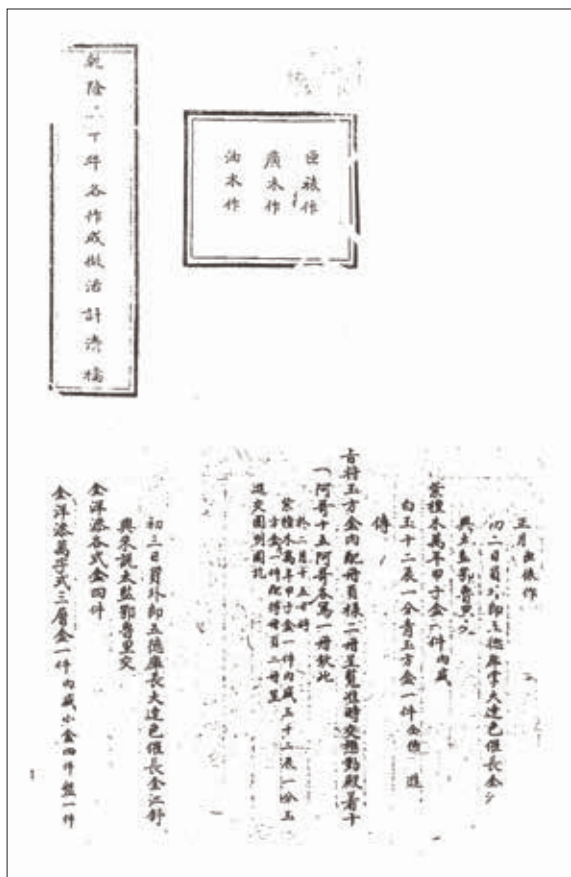 乾隆六十年各作成做活計清檔
匣裱作
廣木作
油木作
正月 匣裱作
初二日員外郎五德庫掌大達色催長金
與太監鄂魯里
紫檀木萬年甲子盒一件內盛
白玉十二辰一分青玉方盒一件 進
傳
旨將玉方盒內配冊頁樣二冊呈覽准時交懋勤殿著十
一阿哥十五阿哥各寫一冊欽此
於二月十五日將
紫檀木萬年甲子盒一件內盛玉十二辰一分玉
方盒一件配得冊頁二冊呈
進交圓明園訖
初三日員外郎五德庫長大達色催長金江舒
興來說太監鄂魯里交
金洋漆各式盒四件
金洋漆萬字式三層盒一件內盛小盒四件盤一件
1